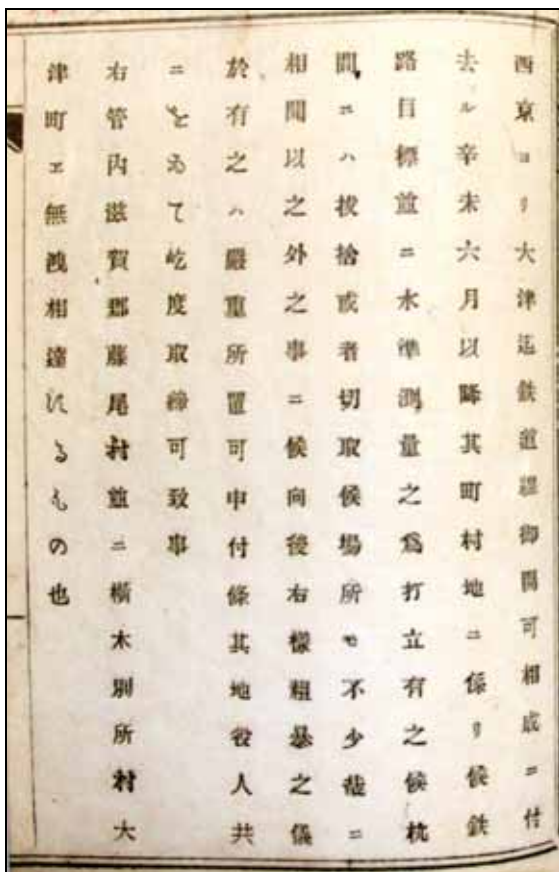 西京ヨリ大津迄鉄道線御開可相成ニ付
去ル辛未六月以降其町村地ニ係リ候鉄
路目標並ニ水準測量之為打立有之候杭
間ニハ拔捨或者切取候場所モ不少哉ニ
相聞以之外之事ニ候向後右様粗暴之儀
於有之ハ嚴重所置可申付條其地役人共
ニをゐて屹度取締可致事
右管内滋賀郡藤尾村並ニ橫木別所村大
津町エ無洩相達するもの也